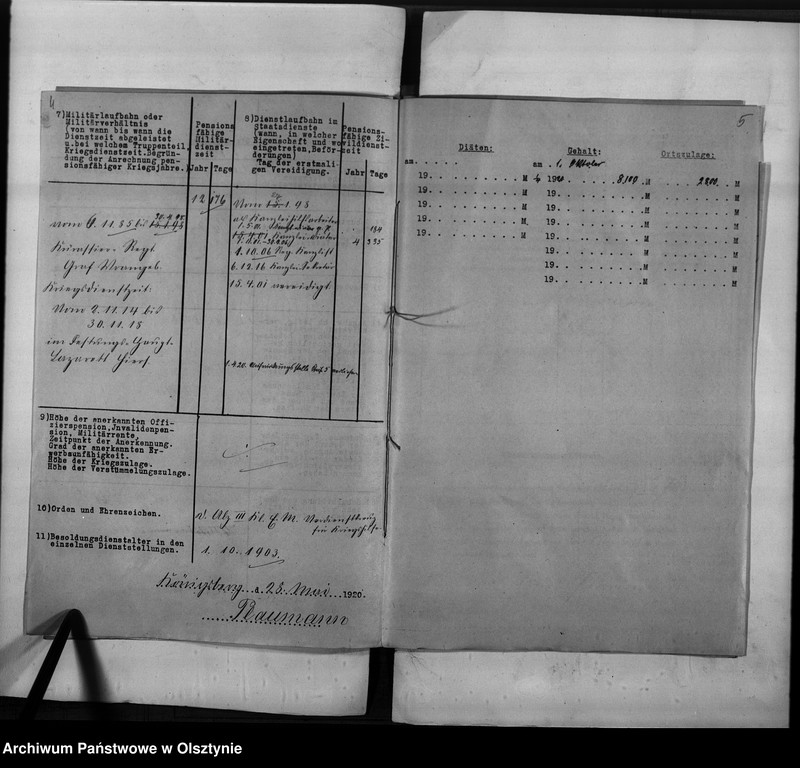 4
7)Militärlaufbahn oder
Militärverhältnis
(von wann bis wann die
Dienstzeit abgeleistet
u.bei welchem Truppenteil,
Kriegsdienstzeit.Begrün-
dung der Anrechnung pen-
sionsfähiger Kriegsjahre.
Pensions
fähige
Militär-
dienst-
zeit
Jahr Tage
8)Dienstlaufbahn im
Staatsdienste
(wann, in welcher
Eigenschaft und wo
eingetreten,Beför-
derungen)
Tag der erstmali-
gen Vereidigung.
Pensions-
fähige Zi-
vildienst-
zeit
Jahr Tage
vom 4.11.85 bis
Kürassier Regt
Graf Wrangel.
Kriegsdienstzeit:
Vom 2.11.14 bis
30.11.18
im Festungs-Haupt-
Lazarett hier.
12 176
Vom 1.98
als
184
4 335
1.10.06 Reg. Kanzlist
6.12.16 Kanzlei-Sekretär
15.4.01 vereidigt
1.4.20
9)Höhe der anerkannten Offi-
zierspension,Invalidenpen-
sion, Militärrente,
Zeitpunkt der Anerkennung.
Grad der anerkannten Er-
werbsunfähigkeit.
Höhe der Kriegszulage.
Höhe der Verstümmelungszulage.
10)Orden und Ehrenzeichen.
III Kl. Verdienstkreuz
für Kriegshilfe
11)Besoldungsdienstalter in den
einzelnen Dienststellungen.
1. 10. 1903.
Königsberg, d. 28. Mai 1920.
Naumann
5
Diäten:
am.....
19.............M
19.............M
19.............M
19.............M
19.............M
Gehalt:
am 1. Oktober
19 8100 M
19.............M
19.............M
19.............M
19.............M
19.............M
19.............M
19.............M
Ortszulage:
2200 M
.......M
.......M
.......M
.......M
.......M
.......M
.......M
Archiwum Państwowe w Olsztynie